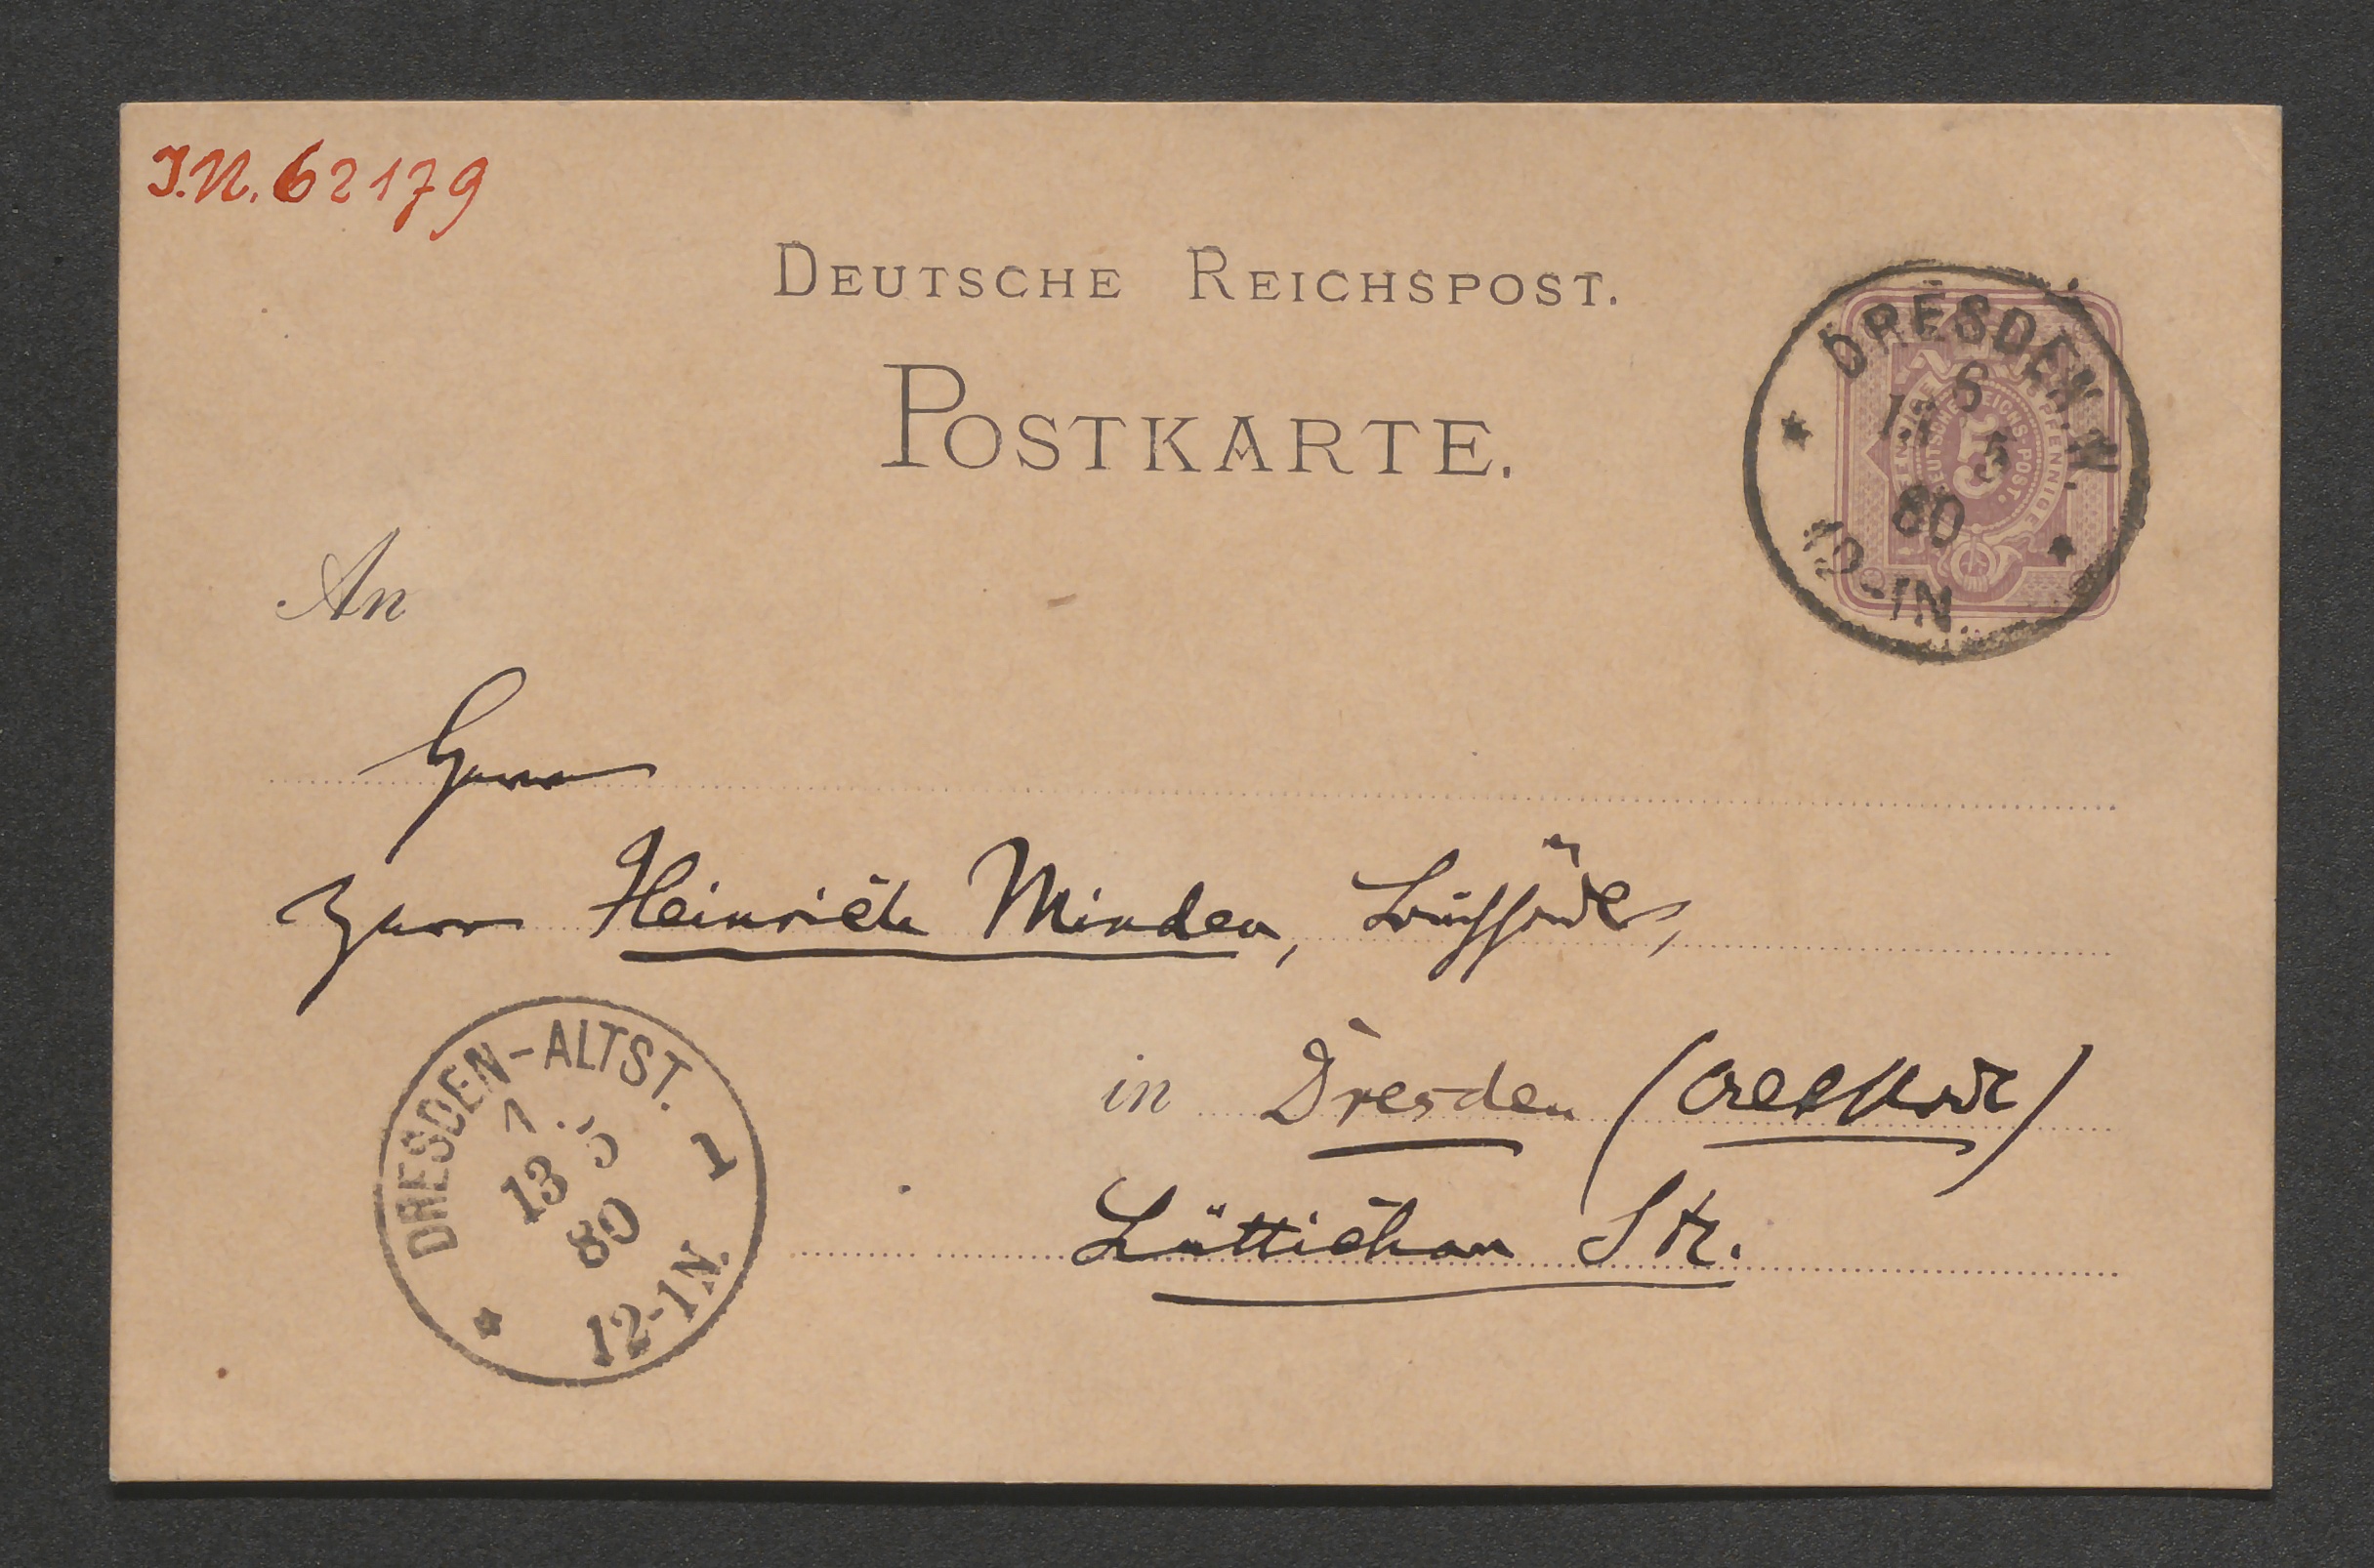 J.N. 62179
DEUTSCHE REICHSPOST.
POSTKARTE.
DRESDEN.N.
6
5
80
12-1N.
FÜNF PFENNIGE
DEUTSCHE REICHS-POST.
5
An
Herrn Heinrich Minden,
in Dresden (Altstadt)
Lüttichau Str.
DRESDEN-ALTST.
1
13 5
80
12-1N.